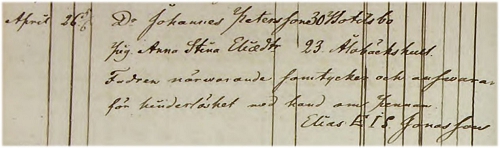 April 26 Dr Johannes Petersson 30 Hotelsbo
Pig Anna Stina Eliædtr 23. Ålbäckshult.
Fadren närwarande samtycker och answarar
för hinderlöshet med hand om Pennan
Elias E I S Jonasson